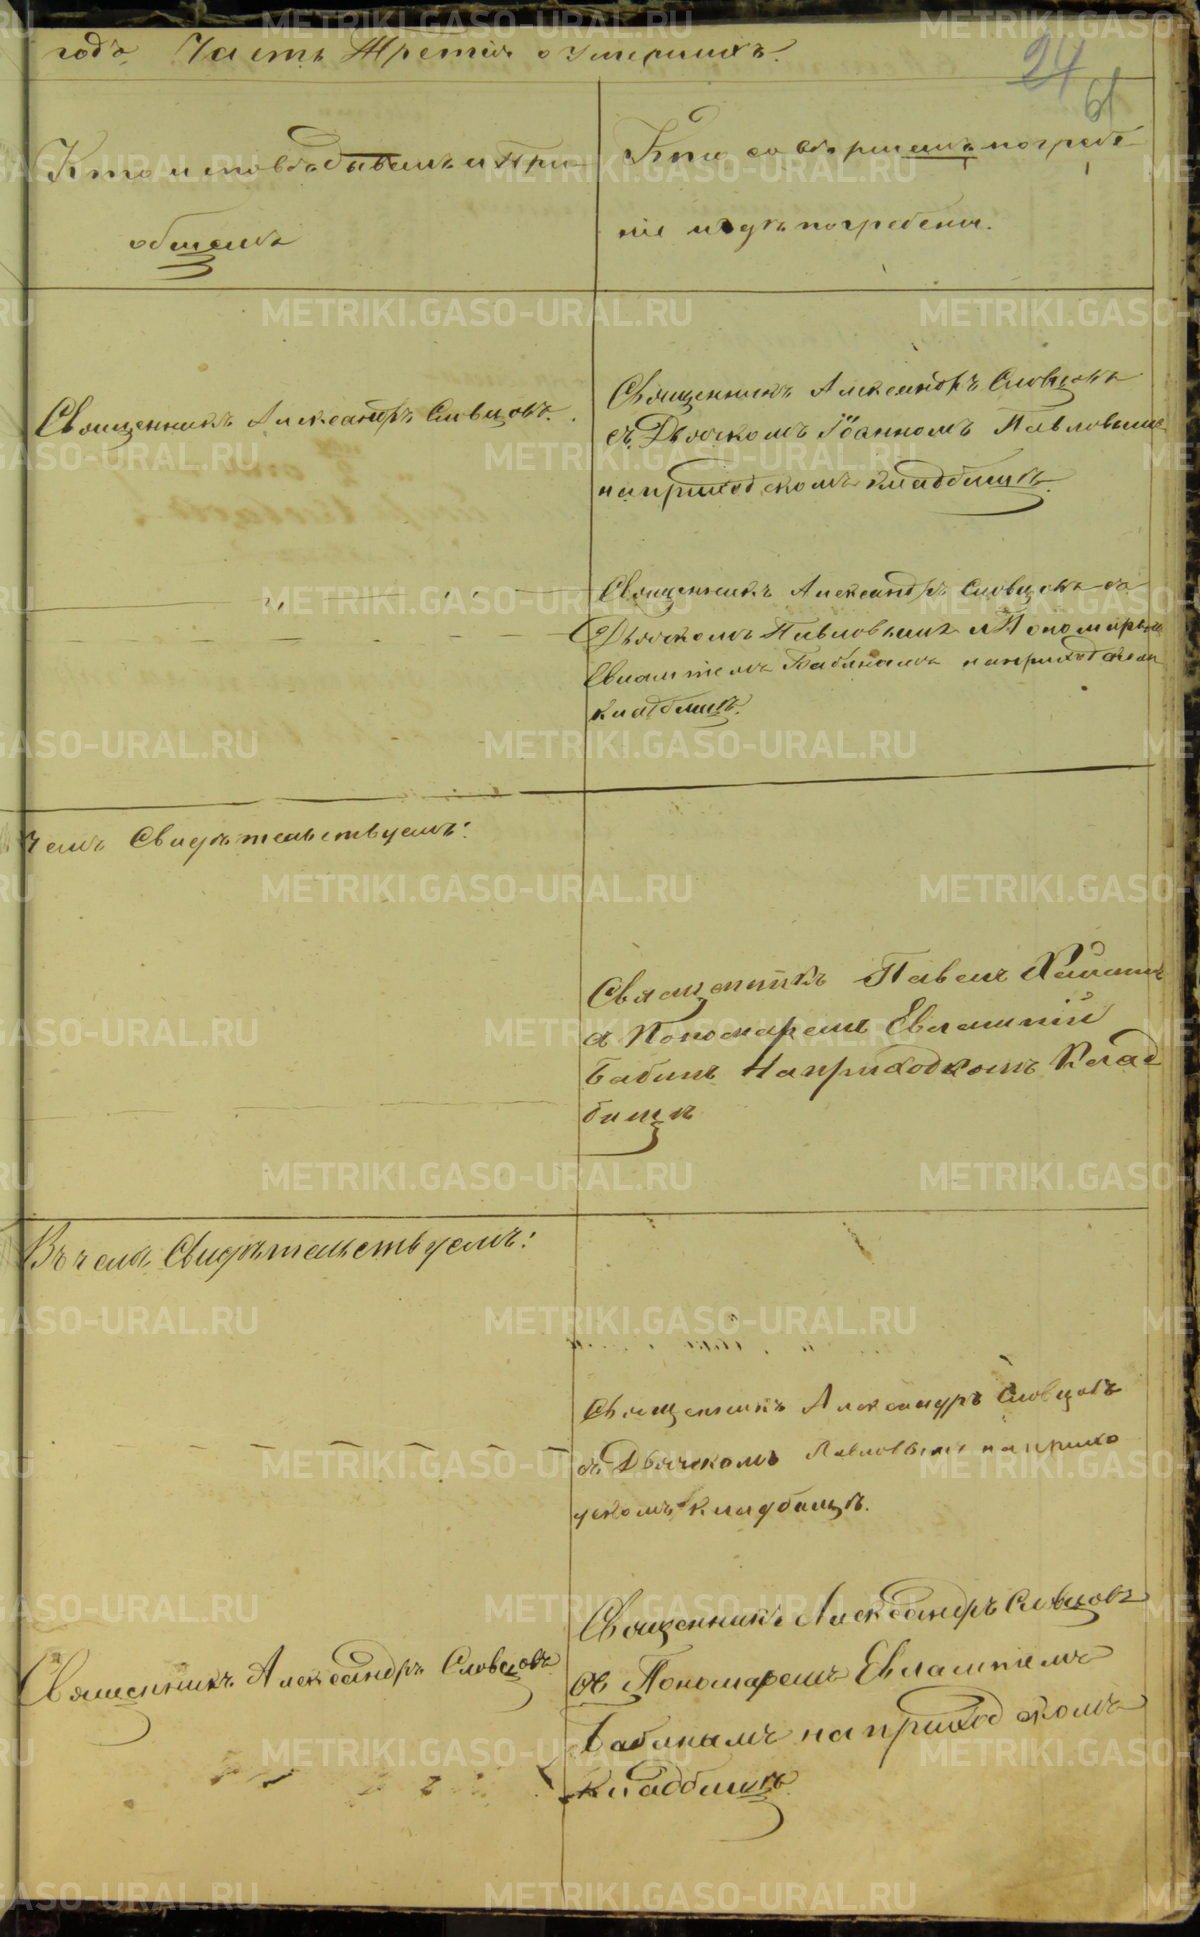 годъ Часть Третія о умершихъ.
24
61
Кто исповѣдывалъ и Прі-
общалъ
Кто совершалъ погребе-
ніе и гдѣ погребены.
Священникъ Александръ Словцовъ.
Священникъ Александръ Словцовъ
съ Дьячкомъ Іоанномъ Павловымъ
на приходскомъ кладбищѣ.
Священникъ Александръ Словцовъ съ
Дьячкомъ Павловымъ и Пономаремъ
Евлампіемъ Бабинымъ на приходском
кладбищѣ.
чемъ Свидѣтельствуемъ:
Священникъ Павелъ
с Пономаремъ Евлампій
Бабинъ На приходкомъ Клад
бищѣ
Въ чемъ Свидѣтельствуемъ:
Священникъ Александръ Словцовъ
съ Дьячкомъ Павловымъ на прихо
дскомъ кладбищѣ.
Священникъ Александръ Словцовъ
Священникъ Александръ Словцовъ
съ Пономаремъ Евлампіемъ
Бабинымъ на приходскомъ
кладбищѣ.
METRIKI.GASO-URAL.RU